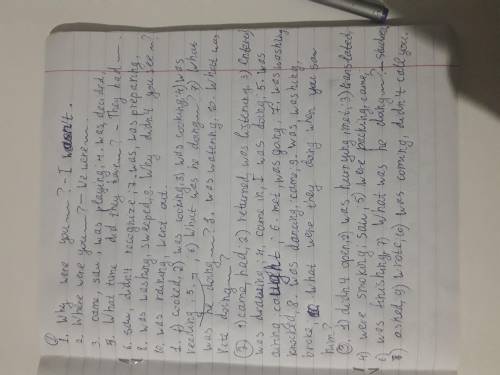 1. Why were you —? - I wasn't.
2. Where were you —? - We were —
3. came, saw, was playing; 4. was decided,
5. What time did they have —? - They had —.
6. saw, didn't recognize; 7. was, was preparing,
8. was washing, sweeped, 9. Why didn't you see —?
10. was raining, went out.
1. 1) cooked, 2) was cooking, 3) was cooking, 4) was
reading; 5. 6) What was he doing — 7) What
was he doing —? 8. was watering; 10. What was
Kate doing —?
2. 1) came, had, 2) returned, was listening, 3) entered,
was 4. came in, 5. was doing, 5. was
caught; 6. met, was going, 7. was washing
knocked, 8. was dancing, came, 9. was washing,
broke, 10. What were they doing when you saw
him?
3. 1) didn't open, 2) was hurrying, met, 3) translated,
4) were smoking, saw, 5) were packing, came,
6) was finishing, 7) What was he doing —?
8) asked, 9) wrote, 10) was coming, didn't call you.